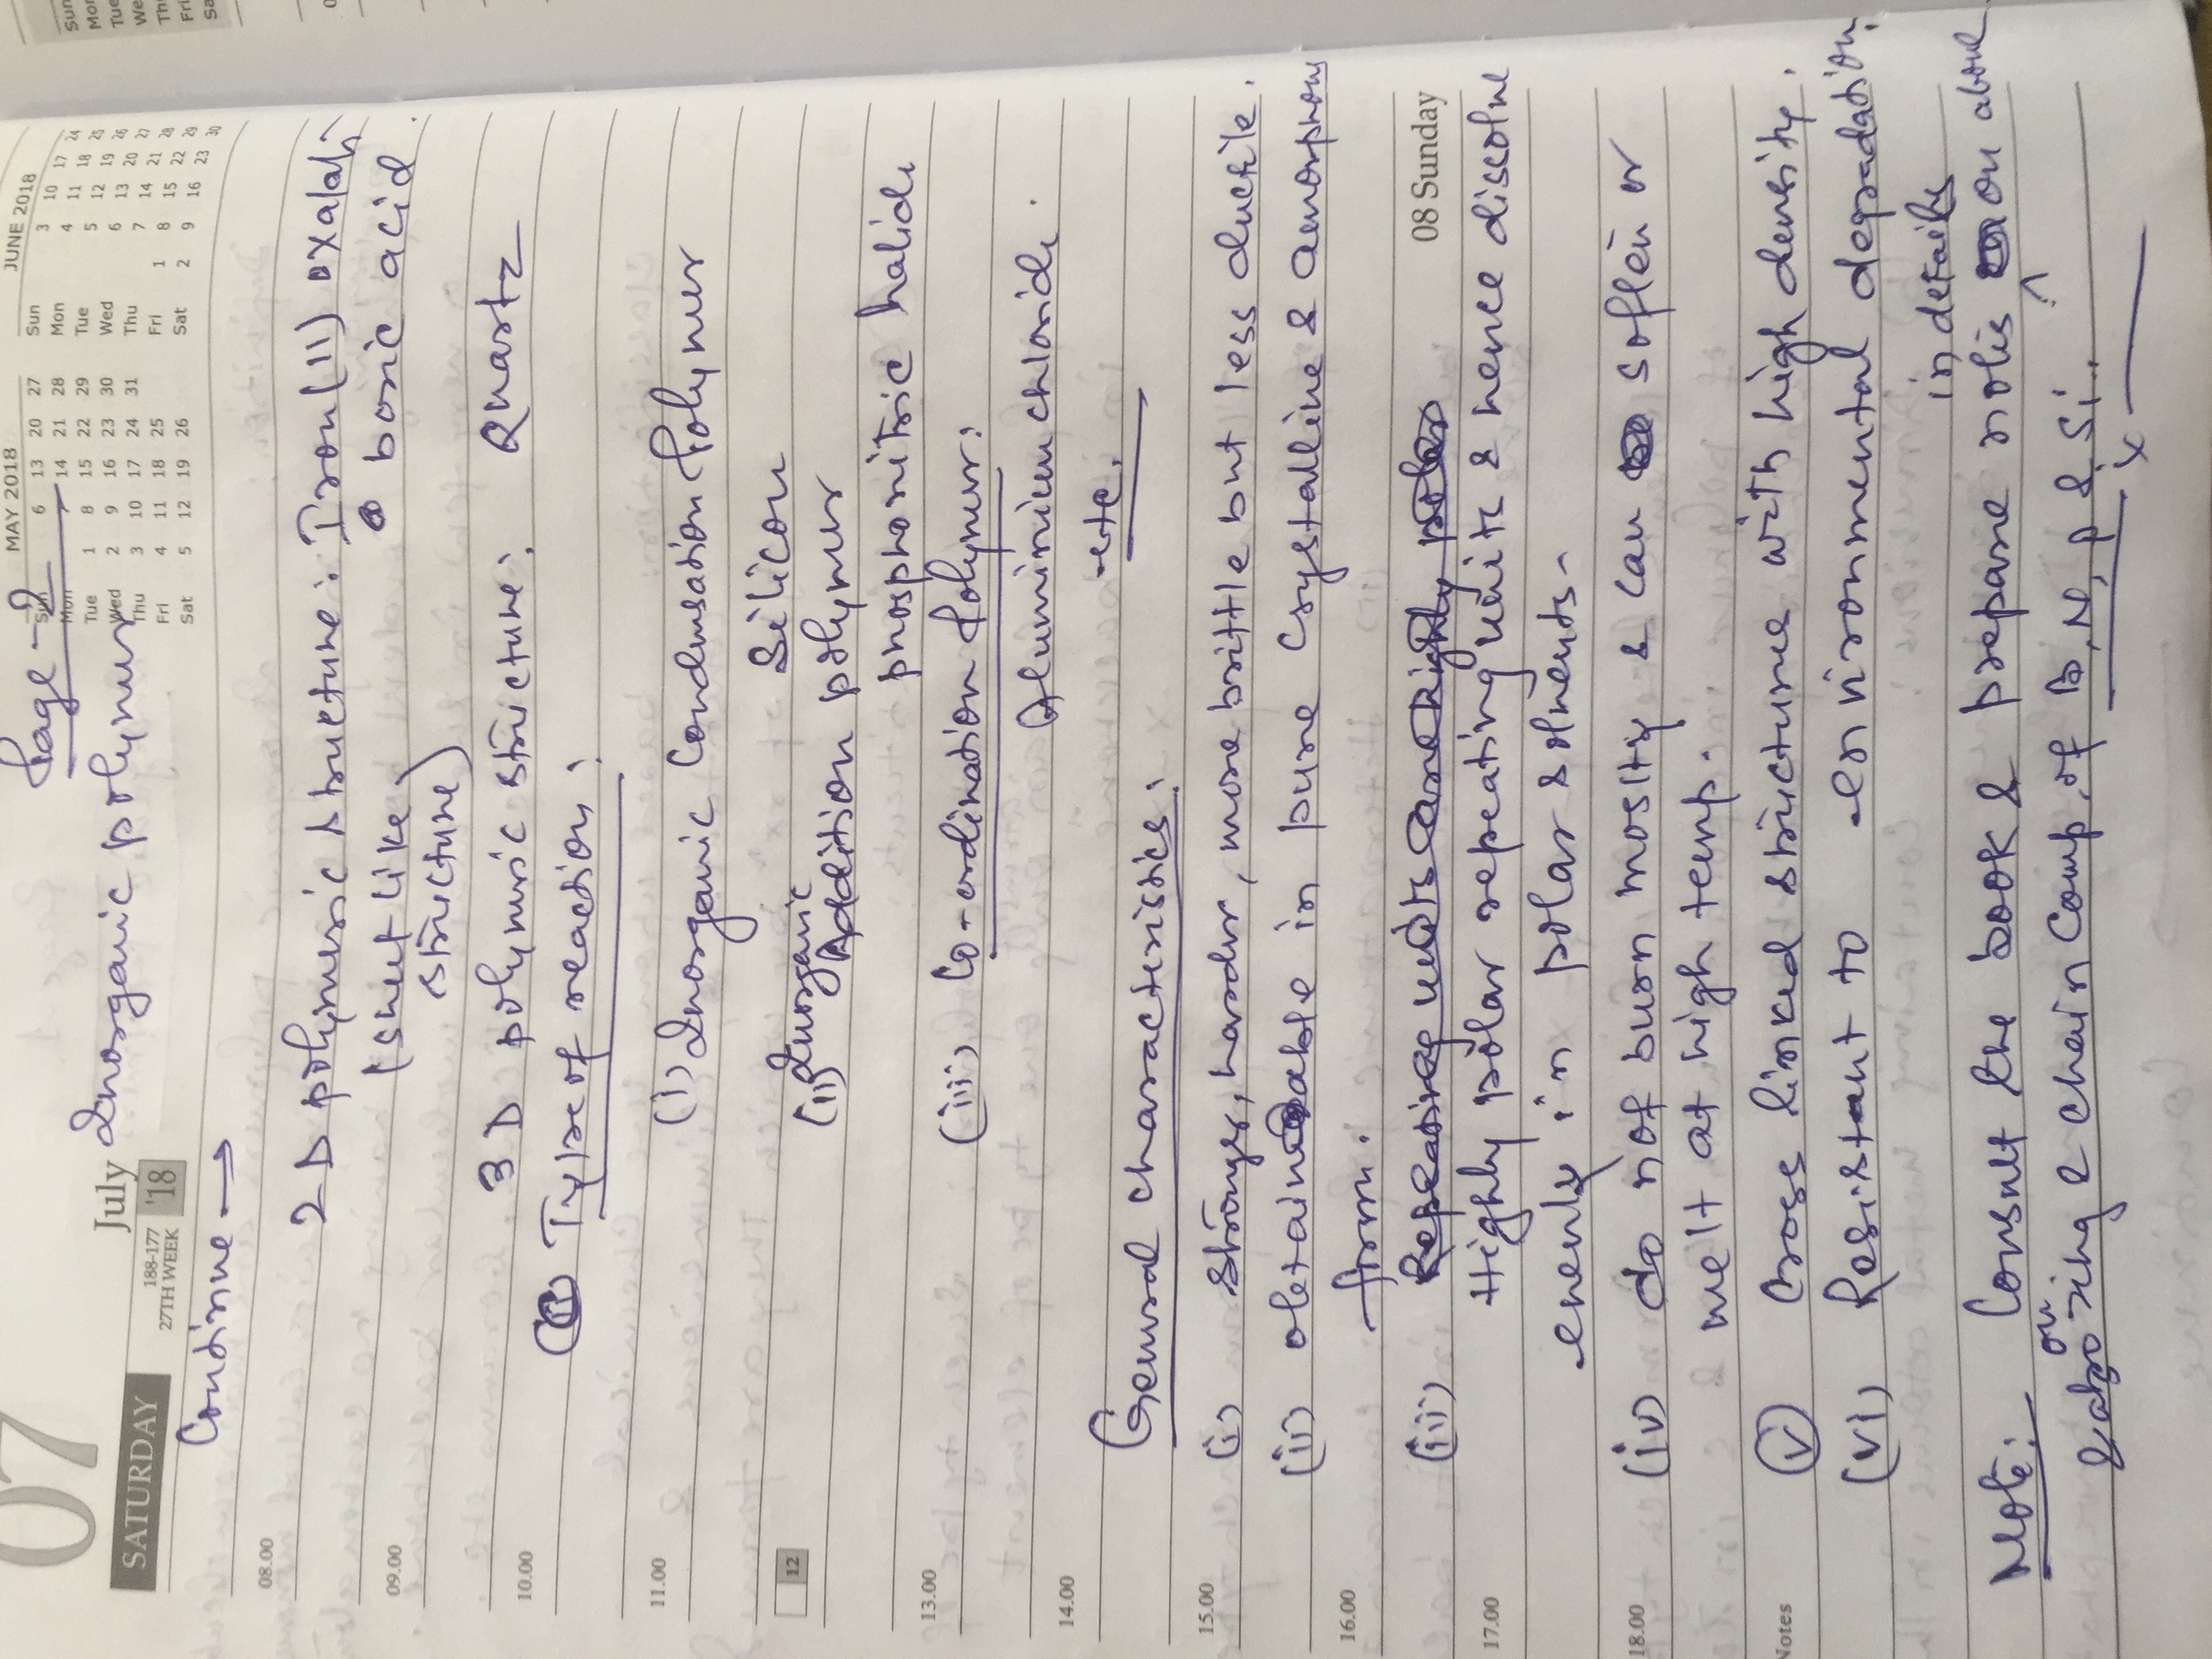 Page-2
07
July
188-177
27TH WEEK
'18
SATURDAY
MAY 2018
Sun 6 13 20 27
Mon 14 21 28
Tue 1 8 15 22 29
Wed 2 9 16 23 30
Thu 3 10 17 24 31
Fri 4 11 18 25
Sat 5 12 19 26
JUNE 2018
Sun 3 10 17 24
Mon 4 11 18 25
Tue 5 12 19 26
Wed 6 13 20 27
Thu 7 14 21 28
Fri 1 8 15 22 29
Sat 2 9 16 23 30
Inorganic polymer
Continue →
08.00
2D polymeric structure: Iron(II) oxalate
09.00
(sheet like boric acid
structure)
10.00
3D polymeric structure: Quartz
Type of reaction:
11.00
(i) Inorganic Condensation Polymer
12
Silicon
(ii) Inorganic Addition polymer
13.00
phosphonitric halide
(iii) Co-ordination Polymer:
14.00
Aluminium chloride
etc.
General characteristics:
15.00
(i) Stronger, harder, more brittle but less ductile.
(ii) obtainable in pure crystalline & amorphous
16.00
form.
08 Sunday
(iii) Repeating units are highly polar
17.00
Highly polar repeating units & hence dissolve
in polar solvents.
18.00
(iv) do not burn mostly & can soften or
melt at high temp.
Notes
(v) Cross linked structure with high density.
(vi) Resistant to environmental degradation.
in details
Note: Consult the book & prepare on above
on ring & chain Comp. of B, N, P & Si.
x